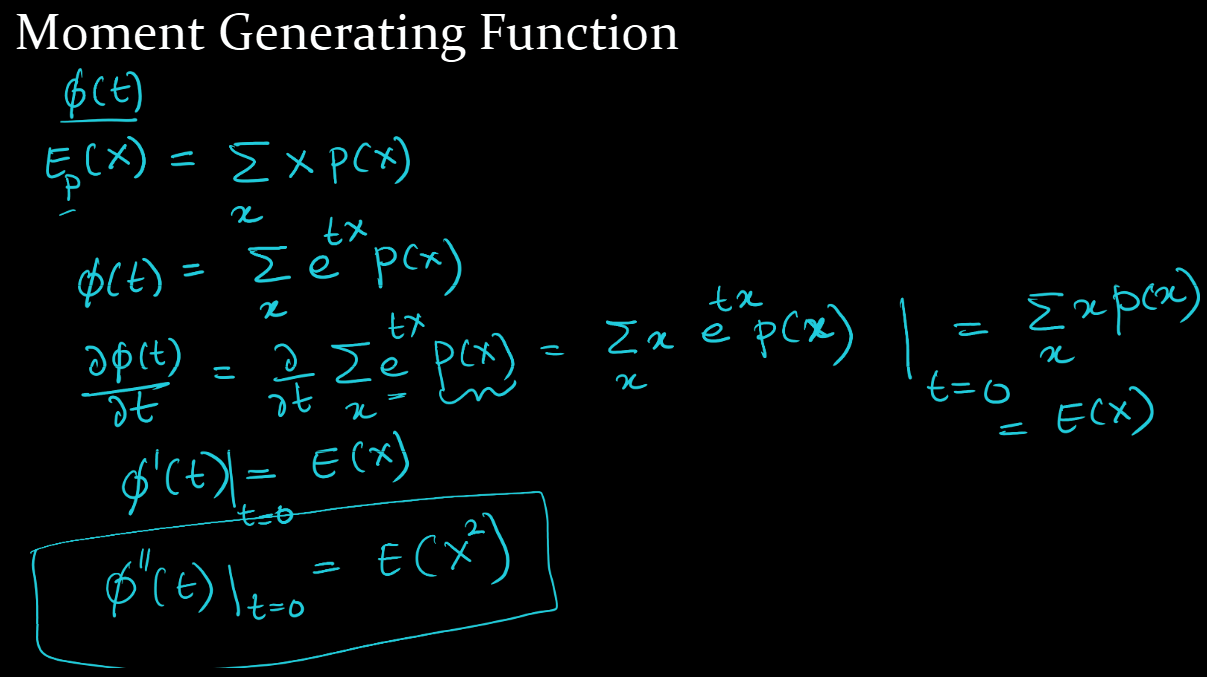 Moment Generating Function
ϕ(t)
E_p(X) = Σ_x x p(x)
ϕ(t) = Σ_x e^{tx} p(x)
∂ϕ(t)/∂t = ∂/∂t Σ_x e^{tx} p(x) = Σ_x x e^{tx} p(x) |_{t=0} = Σ_x x p(x)
= E(X)
ϕ'(t)|_{t=0} = E(X)
ϕ''(t)|_{t=0} = E(X²)